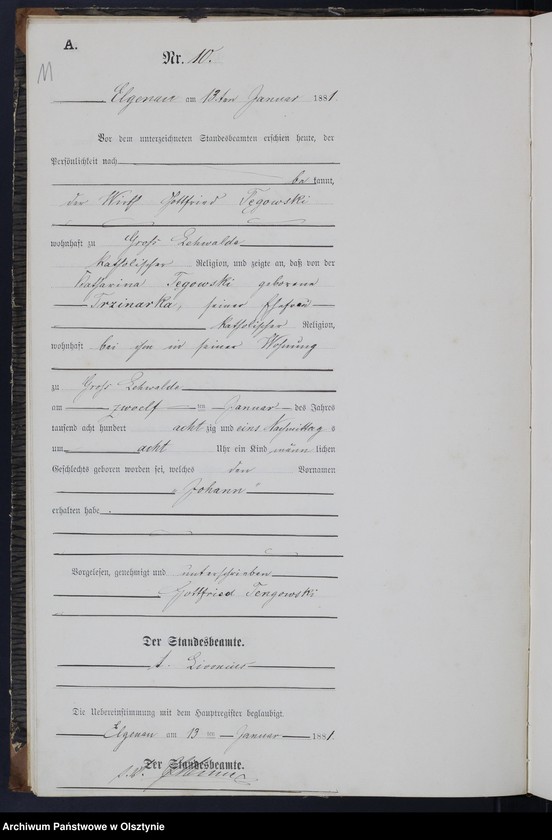 A.
11
Nr. 10.
Elgenau am 13ten Januar 1881.
Vor dem unterzeichneten Standesbeamten erschien heute, der
Persönlichkeit nach
be kannt,
der Wirth Gottfried Tegowski
wohnhaft zu Groß Lehwalde
katholischer Religion, und zeigte an, daß von der
Katharina Tegowski geborene
Trzinarka, seiner Ehefrau
katholischer Religion,
wohnhaft bei ihm in seiner Wohnung
zu Groß Lehwalde
am zwoelf ten Januar des Jahres
tausend acht hundert acht zig und eins Nachmittag s
um acht Uhr ein Kind männ lichen
Geschlechts geboren worden sei, welches den Vornamen
"Johann"
erhalten habe
Vorgelesen, genehmigt und unterschrieben
Gottfried Tengowski
Der Standesbeamte.
Die Uebereinstimmung mit dem Hauptregister beglaubigt.
Elgenau am 13 ten Januar 1881
Der Standesbeamte.
Archiwum Państwowe w Olsztynie